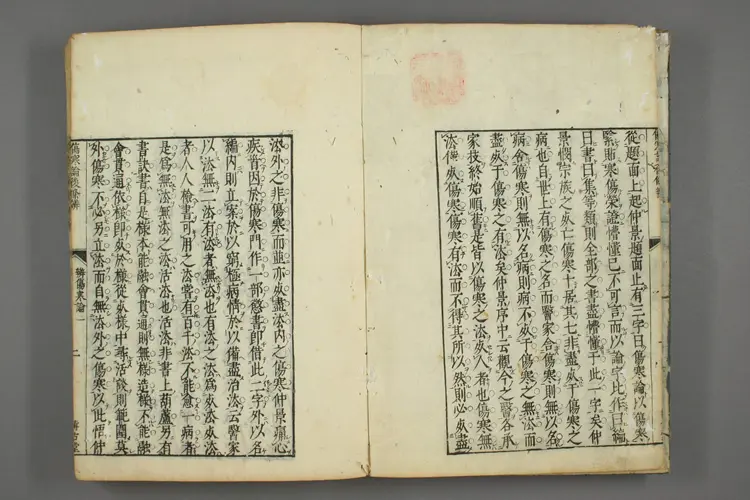 從題面上起仲景題面止有三字曰傷寒論以傷寒
寒傷榮證懵懂已不可言而以論字比作曰編
曰書曰集等類則全部之書盡懵懂于此一字矣仲
景憫宗族之死亡傷寒十居其七非盡死于傷寒之
病也自世上有傷寒之名而醫家舍傷寒則無以名
病舍傷寒則無以名病則病不死于傷寒之無法而
盡死于傷寒之有法矣仲景序中云觀今之醫各承
家技終始順舊是皆以傷寒之法死人者也傷寒無
法傷寒有法而不得其所以然則必死盡
法外之非傷寒而並亦死盡法內之傷寒仲景痛心
疾首因於傷寒門作一部憋書即借此二字外以名
編內則立案於以窮極病情於以備盡治法云醫家
以法無一法有法者無法也有法之法為死法死法
者人人檢書可用之法當有百千法不能愈一病者
是為無法無法之法活法也活法非書上葫蘆另有
書訣書自是樣本能融會貫通則無樣造樣不能融
會貫通依樣即死於樣從死樣中尋活發則範圍莫
外傷寒不必另立法而自無法外之傷寒以此悟仲
傷寒論後條辨
辨傷寒論一
二